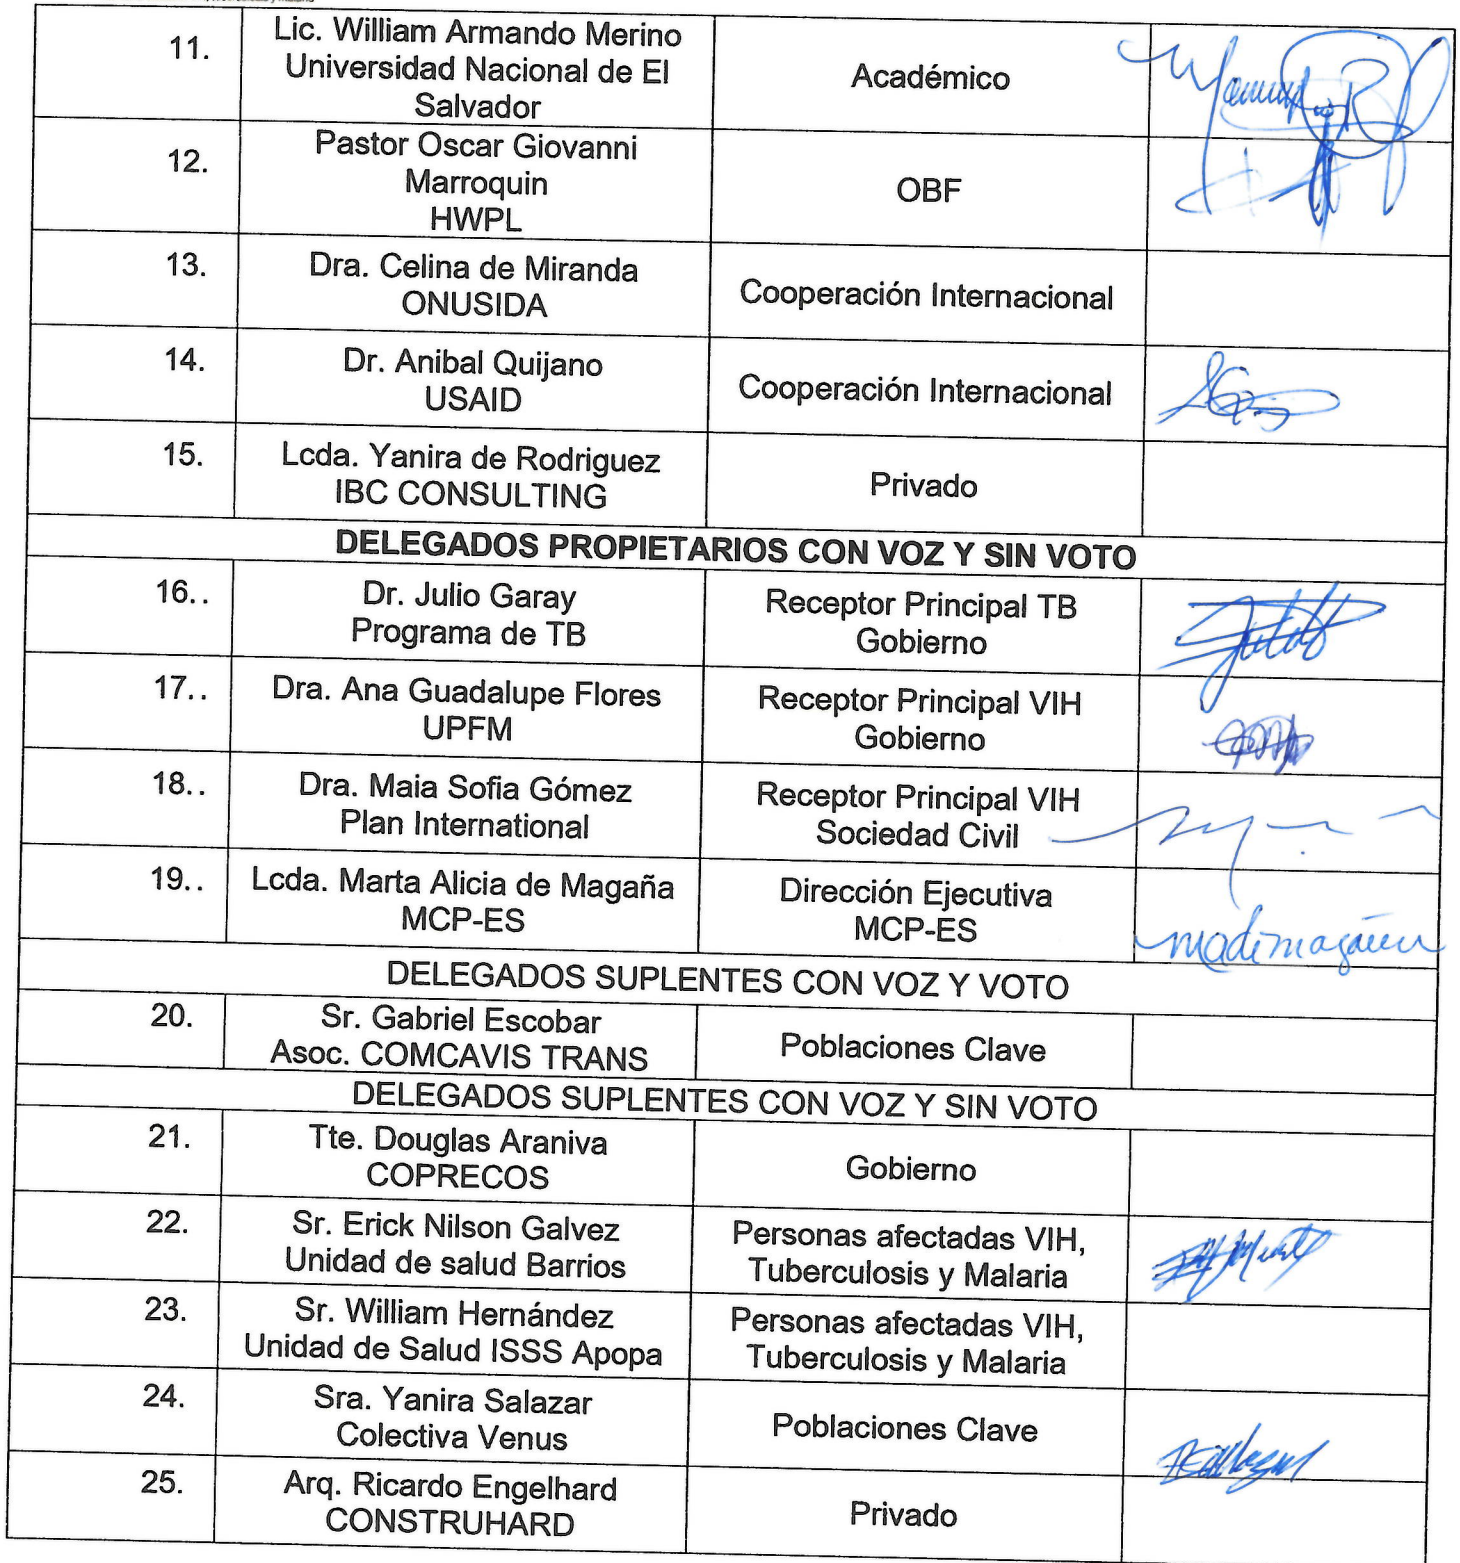 11.
Lic. William Armando Merino
Universidad Nacional de El
Salvador
Académico
12.
Pastor Oscar Giovanni
Marroquin
HWPL
OBF
13.
Dra. Celina de Miranda
ONUSIDA
Cooperación Internacional
14.
Dr. Anibal Quijano
USAID
Cooperación Internacional
15.
Lcda. Yanira de Rodriguez
IBC CONSULTING
Privado
DELEGADOS PROPIETARIOS CON VOZ Y SIN VOTO
16..
Dr. Julio Garay
Programa de TB
Receptor Principal TB
Gobierno
17..
Dra. Ana Guadalupe Flores
UPFM
Receptor Principal VIH
Gobierno
18..
Dra. Maia Sofia Gómez
Plan International
Receptor Principal VIH
Sociedad Civil
19..
Lcda. Marta Alicia de Magaña
MCP-ES
Dirección Ejecutiva
MCP-ES
DELEGADOS SUPLENTES CON VOZ Y VOTO
20.
Sr. Gabriel Escobar
Asoc. COMCAVIS TRANS
Poblaciones Clave
DELEGADOS SUPLENTES CON VOZ Y SIN VOTO
21.
Tte. Douglas Araniva
COPRECOS
Gobierno
22.
Sr. Erick Nilson Galvez
Unidad de salud Barrios
Personas afectadas VIH,
Tuberculosis y Malaria
23.
Sr. William Hernández
Unidad de Salud ISSS Apopa
Personas afectadas VIH,
Tuberculosis y Malaria
24.
Sra. Yanira Salazar
Colectiva Venus
Poblaciones Clave
25.
Arq. Ricardo Engelhard
CONSTRUHARD
Privado